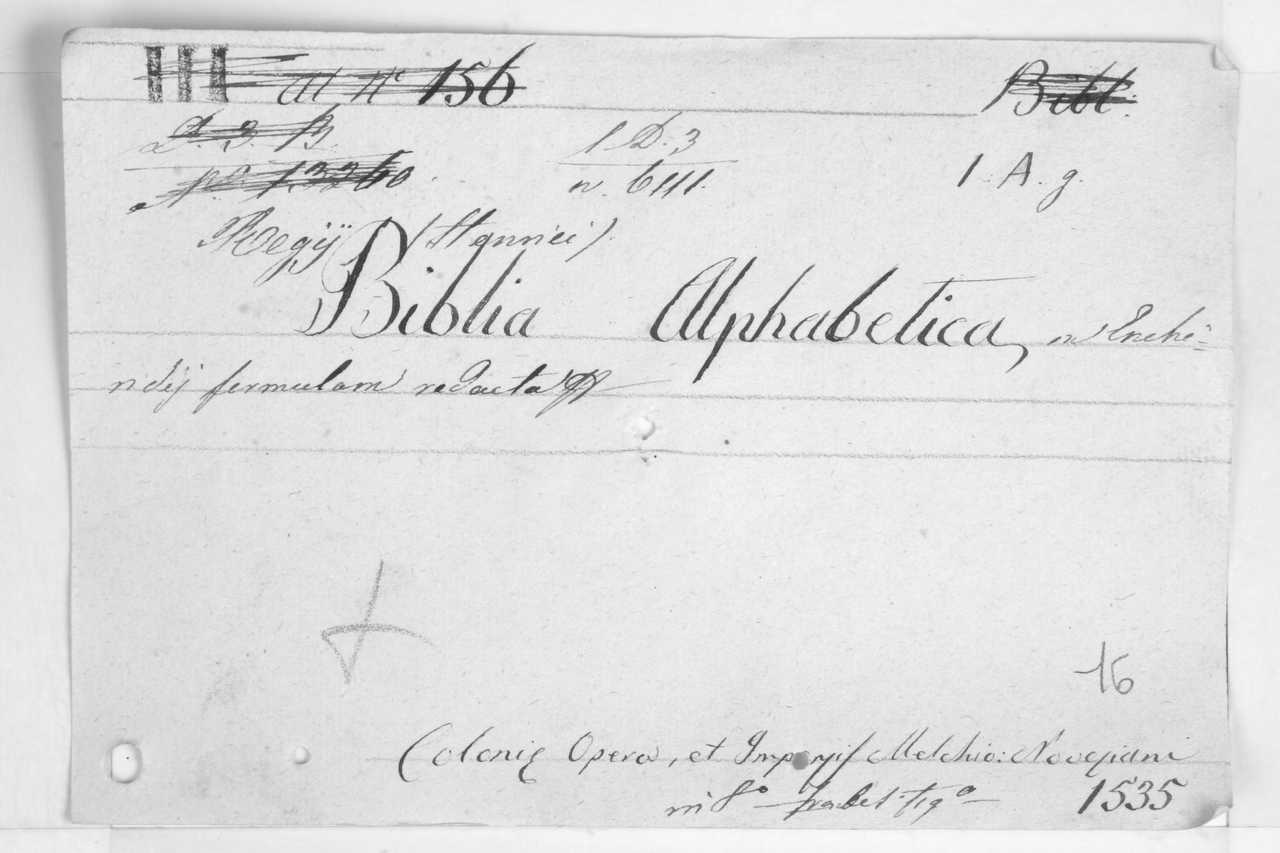 III al N° 156 Bibl.
D. 3. B. 1 D. 3
n° 13260. n. 6111. 1. A. g.
Regij (Henrici).
Biblia Alphabetica, in Enchi-
ridij formulam redacta
16
Colonię Opera, et Impensis Melchio: Novesiani
in 8° 1535